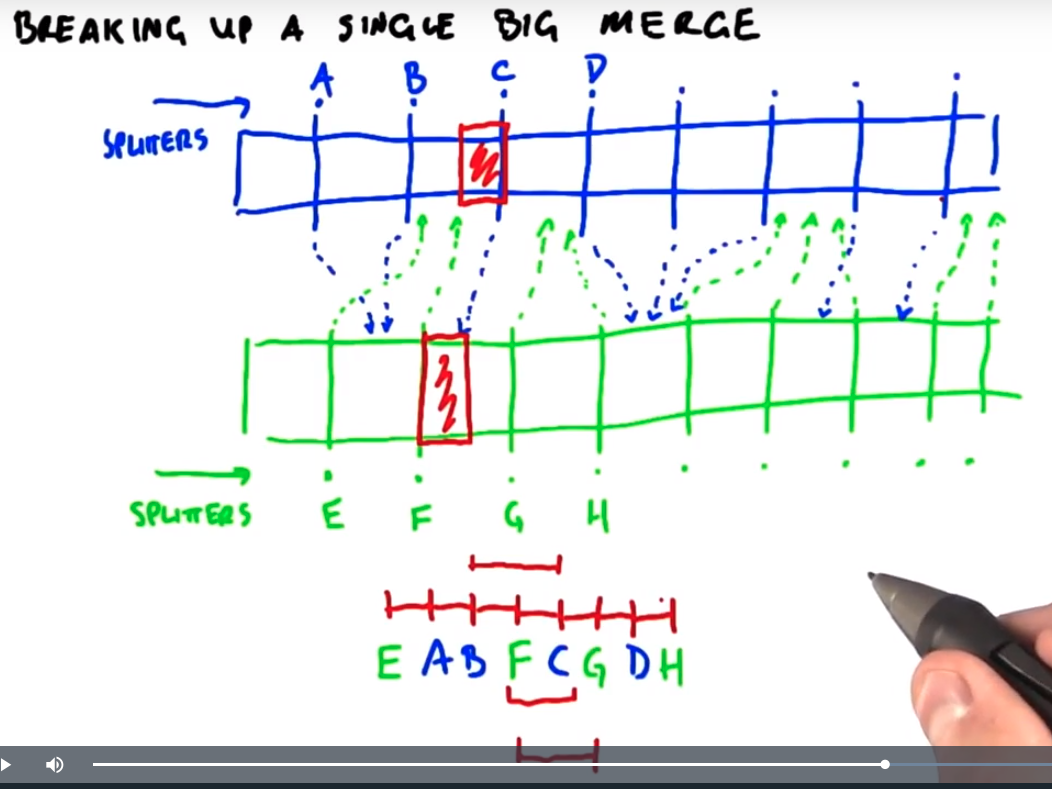 BREAKING UP A SINGLE BIG MERGE
A B C D
SPLITTERS
SPLITTERS
E F G H
E A B F C G D H